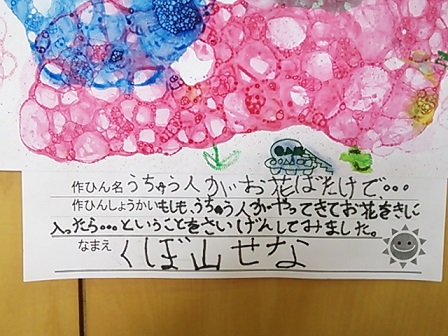 作ひん名うちゅう人がお花ばたけで・・・
作ひんしょうかいもしも、うちゅう人がやってきてお花をきに
入ったら・・・ということをさいげんしてみました。
なまえ くぼ山せな